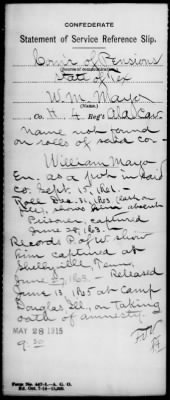 CONFEDERATE
Statement of Service Reference Slip.
Com'r of Pensions
State of Tex
W. M. Mayo
(Name.)
Co. H. 4 Reg't Ala Cav.
Name not found
on rolls of said co.
William Mayo
En. as a pvt in said
co. Sept 15, 1861.
Roll Dec. 31, 1863 (
shows him absent
Prisoner, captured
June 28, 1863.
Records P of W show
him captured at
Shelbyville, Tenn.
June 27, 1863. Released
June 13, 1865 at Camp
Douglas, Ill., on taking
oath of amnesty.
MAY 28 1915
9.30
Form No. 447-1—A. G. O.